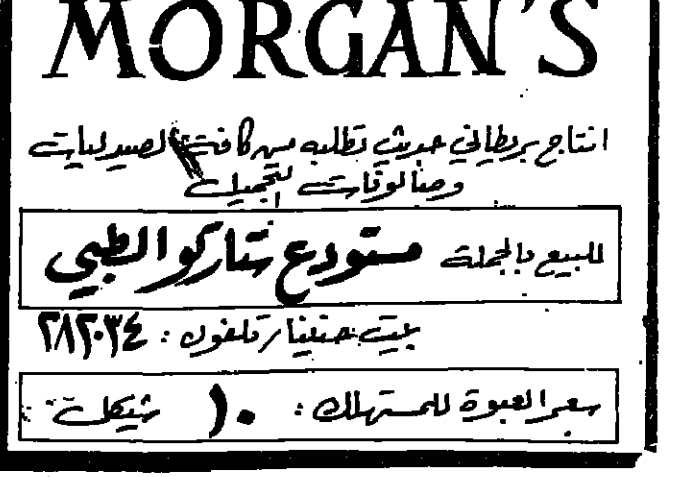 MORGAN'S
انتاج بريطاني حديث تطلبه من كافة الصيدليات
وصالونات التجميل
للبيع بالجملة مستودع ستاركو الطبي
بيت حنينا / تلفون : ٢٨٢٠٣٤
سعر العبوة للمستهلك : ١٠ شيكل